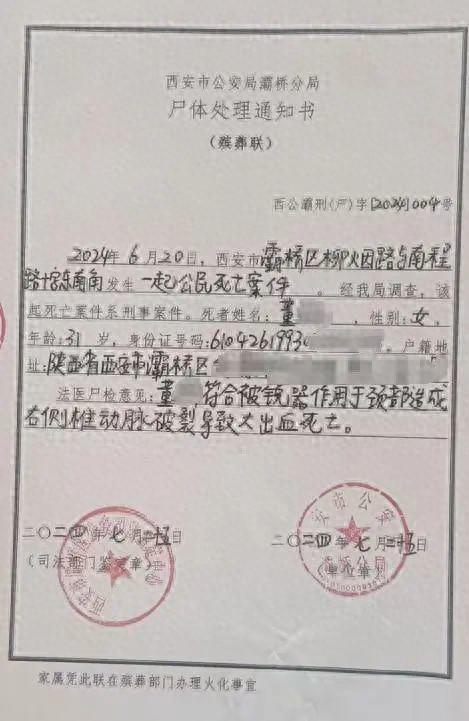 西安市公安局灞桥分局
尸体处理通知书
(殡葬联)
西公灞刑(尸)字[2024]004号
2024年6月20日,西安市灞桥区柳烟路与南程
路十字东南角发生一起公民死亡案件。经我局调查,该
起死亡案件系刑事案件。死者姓名:董 ,性别:女,
年龄:31岁,身份证号码:6104261993 。户籍地
址:陕西省西安市灞桥区
法医尸检意见:董 符合被锐器作用于颈部造成
右侧椎动脉破裂导致大出血死亡。
二〇二四年七月 五日
二〇二四年七月 五日
(司法部门 章)
(单位章)
安市公安
灞桥分局
家属凭此联在殡葬部门办理火化事宜